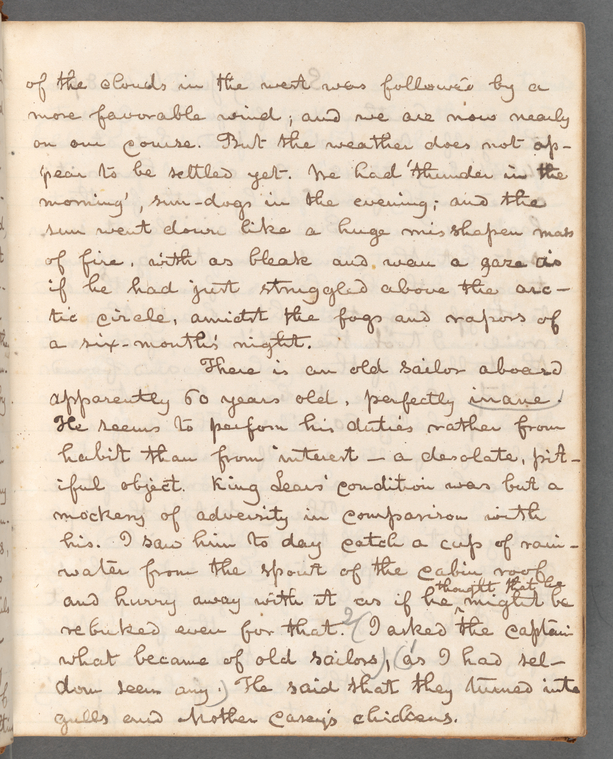 of the clouds in the west was followed by a
more favorable wind; and we are now nearly
on our course. But the weather does not ap-
pear to be settled yet. We had 'thunder in the
morning', sun-dogs in the evening; and the
sun went down like a huge misshapen mass
of fire, with as bleak and wan a gaze as
if he had just struggled above the arc-
tic circle, amidst the fogs and vapors of
a six-months' night.
There is an old sailor aboard
apparently 60 years old, perfectly inane.
He seems to perform his duties rather from
habit than from interest — a desolate, pit-
iful object. King Lears' condition was but a
mockery of adversity in comparison with
his. I saw him to day catch a cup of rain-
water from the spout of the cabin roof
thought that he
and hurry away with it as if he might be
rebuked even for that. 2 (I asked the captain
what became of old sailors), (as I had sel-
dom seen any.) He said that they turned into
gulls and Mother Casey's chickens.